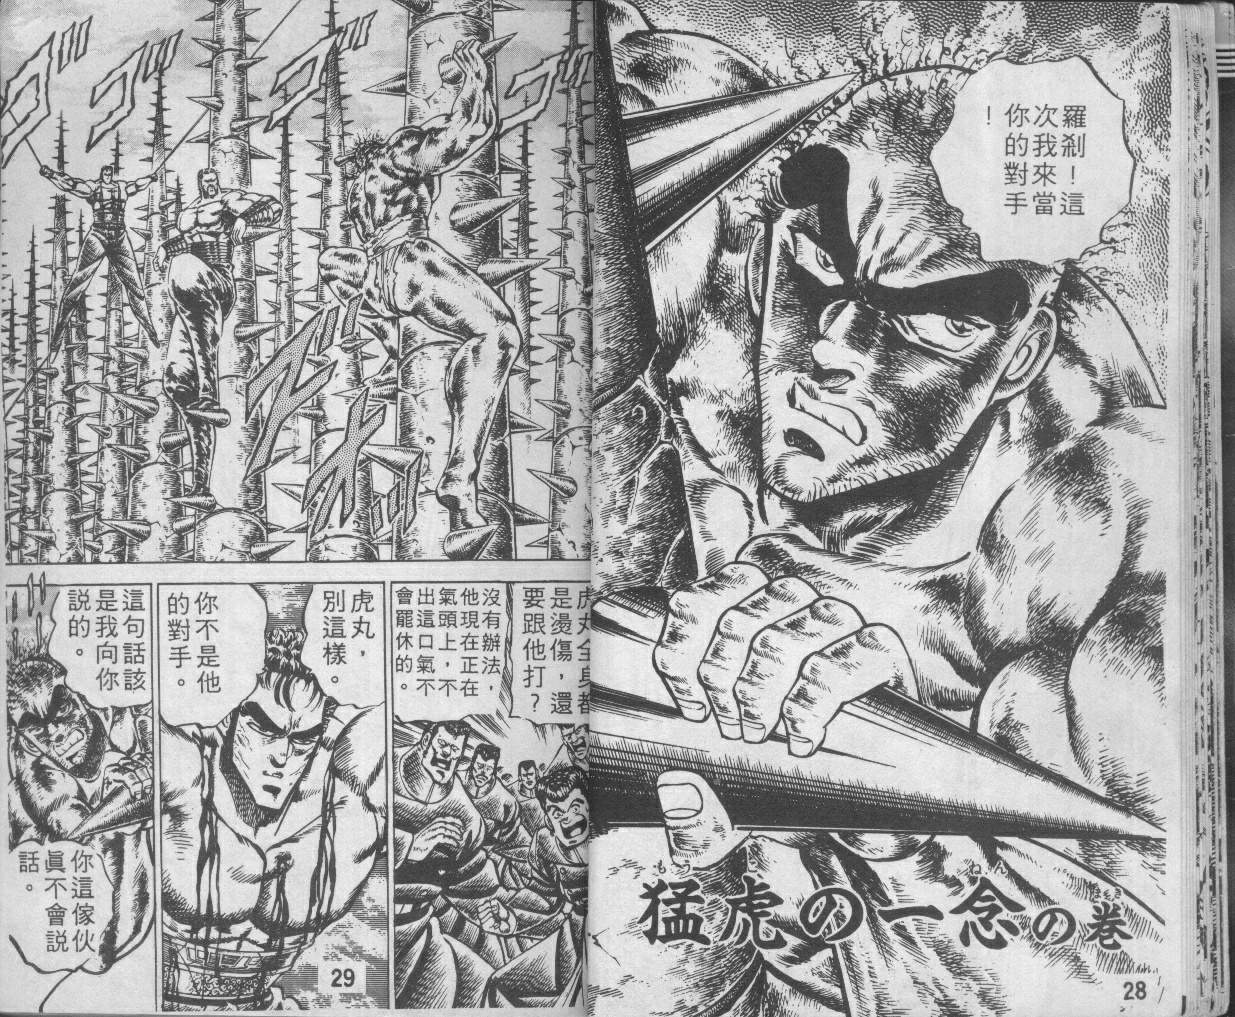 羅剎！這
次我來當
你的對手
！
もう
ねん
まき
猛虎の一念の巻
28
虎丸全身都
是燙傷，還
要跟他打？
沒有辦法，
他現在正在
氣頭上，不
出這口氣不
會罷休的。
虎丸，
別這樣。
你不是他
的對手。
這句話該
是我向你
説的。
你這傢伙
眞不會説
話。
29